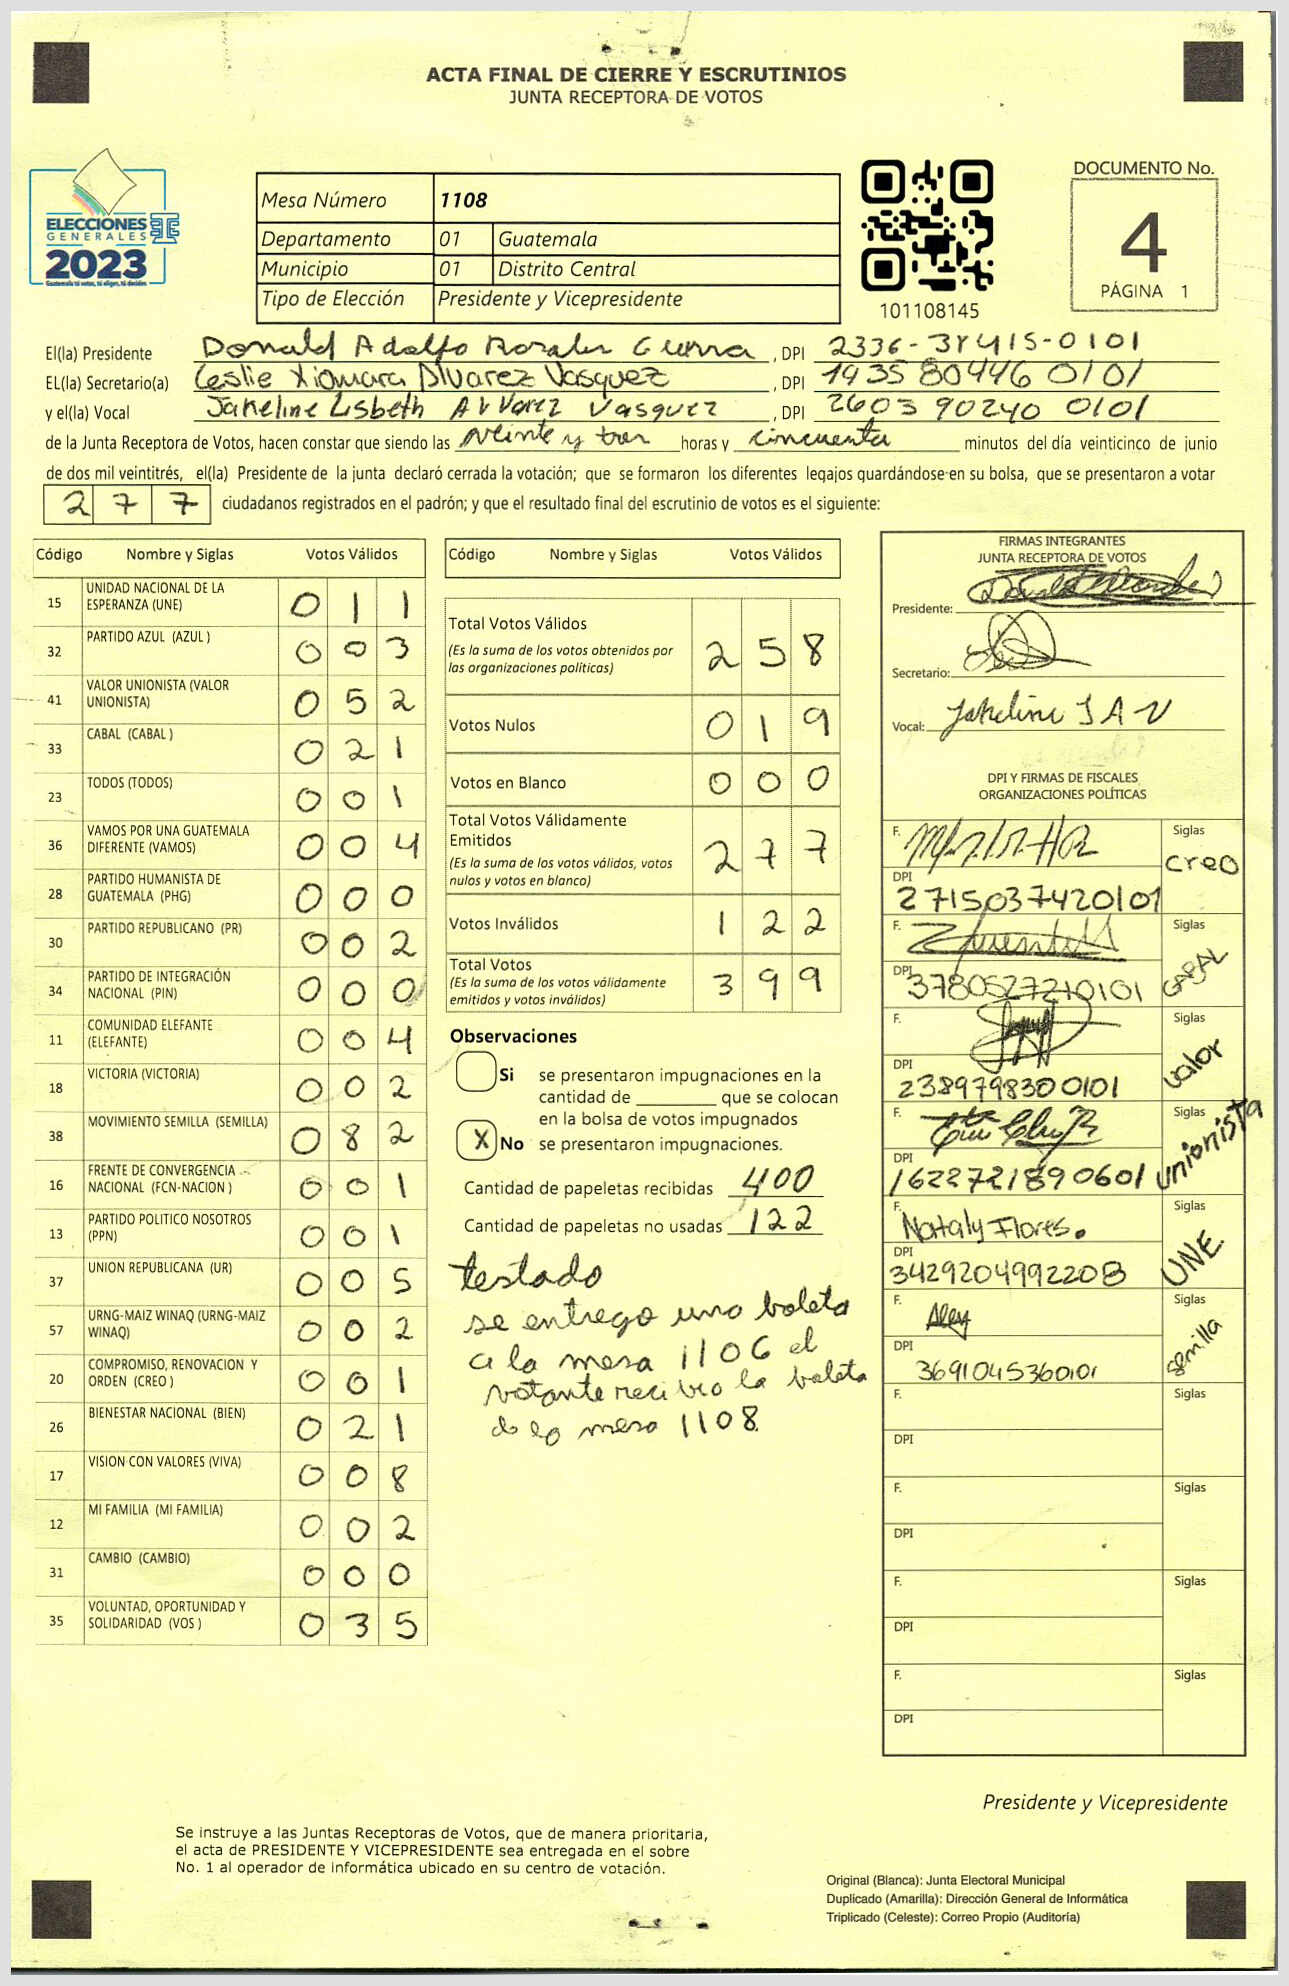 ACTA FINAL DE CIERRE Y ESCRUTINIOS
JUNTA RECEPTORA DE VOTOS
ELECCIONES
GENERALES
2023
Guatemala tú votas, tú eliges, tú decides
Mesa Número 1108
Departamento 01 Guatemala
Municipio 01 Distrito Central
Tipo de Elección Presidente y Vicepresidente
101108145
DOCUMENTO No.
4
PÁGINA 1
El(la) Presidente Donald Adolfo Morales Guerra , DPI 2336-38415-0101
EL(la) Secretario(a) Leslie Xiomara Alvarez Vasquez , DPI 1935 80446 0101
y el(la) Vocal Jakeline Lisbeth Alvarez Vasquez , DPI 2603 90240 0101
de la Junta Receptora de Votos, hacen constar que siendo las veinte y tres horas y cincuenta minutos del día veinticinco de junio
de dos mil veintitrés, el(la) Presidente de la junta declaró cerrada la votación; que se formaron los diferentes legajos guardándose en su bolsa, que se presentaron a votar
277 ciudadanos registrados en el padrón; y que el resultado final del escrutinio de votos es el siguiente:
Código Nombre y Siglas Votos Válidos
15 UNIDAD NACIONAL DE LA ESPERANZA (UNE) 011
32 PARTIDO AZUL (AZUL ) 003
41 VALOR UNIONISTA (VALOR UNIONISTA) 052
33 CABAL (CABAL ) 021
23 TODOS (TODOS) 001
36 VAMOS POR UNA GUATEMALA DIFERENTE (VAMOS) 004
28 PARTIDO HUMANISTA DE GUATEMALA (PHG) 000
30 PARTIDO REPUBLICANO (PR) 002
34 PARTIDO DE INTEGRACIÓN NACIONAL (PIN) 000
11 COMUNIDAD ELEFANTE (ELEFANTE) 004
18 VICTORIA (VICTORIA) 002
38 MOVIMIENTO SEMILLA (SEMILLA) 082
16 FRENTE DE CONVERGENCIA NACIONAL (FCN-NACION ) 001
13 PARTIDO POLITICO NOSOTROS (PPN) 001
37 UNION REPUBLICANA (UR) 005
57 URNG-MAIZ WINAQ (URNG-MAIZ WINAQ) 002
20 COMPROMISO, RENOVACION Y ORDEN (CREO ) 001
26 BIENESTAR NACIONAL (BIEN) 021
17 VISION CON VALORES (VIVA) 008
12 MI FAMILIA (MI FAMILIA) 002
31 CAMBIO (CAMBIO) 000
35 VOLUNTAD, OPORTUNIDAD Y SOLIDARIDAD (VOS ) 035
Código Nombre y Siglas Votos Válidos
Total Votos Válidos 258
(Es la suma de los votos obtenidos por
las organizaciones políticas)
Votos Nulos 019
Votos en Blanco 000
Total Votos Válidamente
Emitidos 277
(Es la suma de los votos válidos, votos
nulos y votos en blanco)
Votos Inválidos 122
Total Votos 399
(Es la suma de los votos válidamente
emitidos y votos inválidos)
Observaciones
Si se presentaron impugnaciones en la
cantidad de ________ que se colocan
en la bolsa de votos impugnados
X No se presentaron impugnaciones.
Cantidad de papeletas recibidas 400
Cantidad de papeletas no usadas 122
testado
se entrego una boleta
a la mesa 1106 el
votante recibio la boleta
de la mesa 1108
FIRMAS INTEGRANTES
JUNTA RECEPTORA DE VOTOS
Presidente:
Secretario:
Vocal: Jakeline L A V
DPI Y FIRMAS DE FISCALES
ORGANIZACIONES POLÍTICAS
F. Siglas creo
DPI 2715037420101
F. Siglas CABAL
DPI 3780527210101
F. Siglas valor
DPI 2389798300101
F. Siglas unionista
DPI 1622721890601
F. Nataly Flores. Siglas UNE
DPI 3429204992208
F. Aley Siglas semilla
DPI 3691045360101
F. Siglas
DPI
F. Siglas
DPI
F. Siglas
DPI
F. Siglas
DPI
Presidente y Vicepresidente
Se instruye a las Juntas Receptoras de Votos, que de manera prioritaria,
el acta de PRESIDENTE Y VICEPRESIDENTE sea entregada en el sobre
No. 1 al operador de informática ubicado en su centro de votación.
Original (Blanca): Junta Electoral Municipal
Duplicado (Amarilla): Dirección General de Informática
Triplicado (Celeste): Correo Propio (Auditoría)